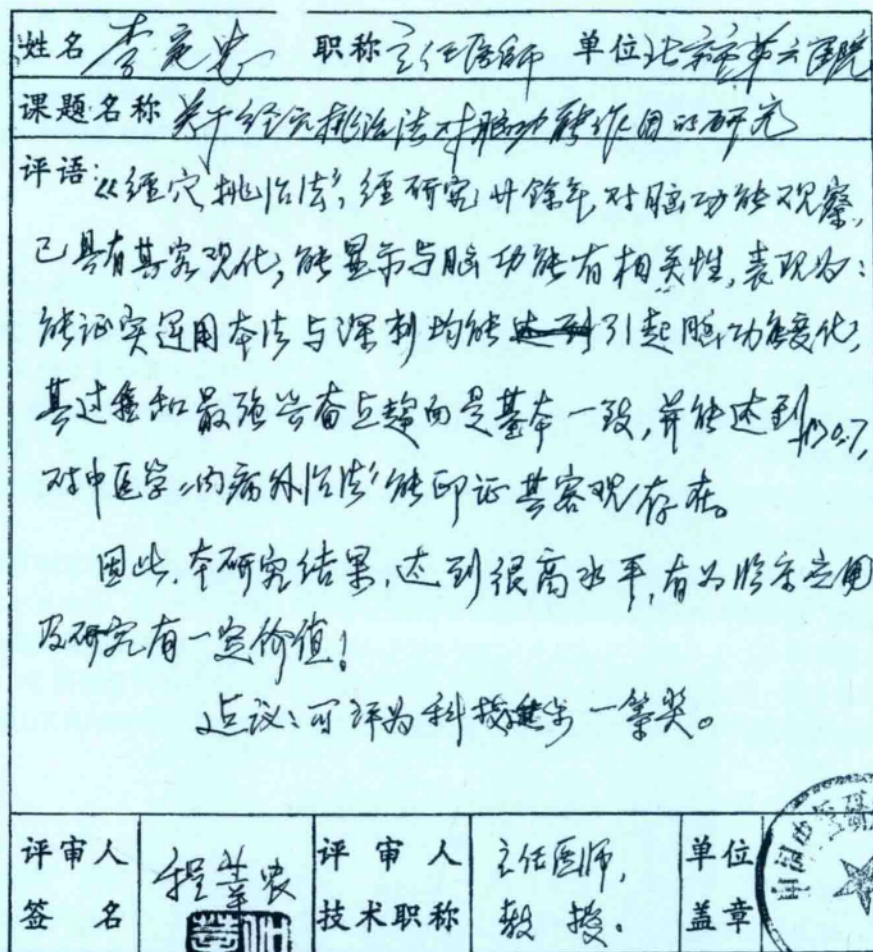 姓名 李定忠 职称 主任医师 单位 北京市第六医院
课题名称 关于经穴挑治法对脑功能作用的研究
评语:《经穴挑治法》,经研究廿馀年,对脑功能观察,
已具有其客观化,能显示与脑功能有相关性,表现为:
能证实运用本法与深刺均能引起脑功能变化,
其过程和最强兴奋点趋向是基本一致,并能达到
对中医学"内病外治法"能印证其客观存在。
因此,本研究结果,达到很高水平,有为临床应用
及研究有一定价值!
建议:可评为科技进步一等奖。
评审人 签名 程莘农 评审人 技术职称 主任医师, 教授。 单位 盖章